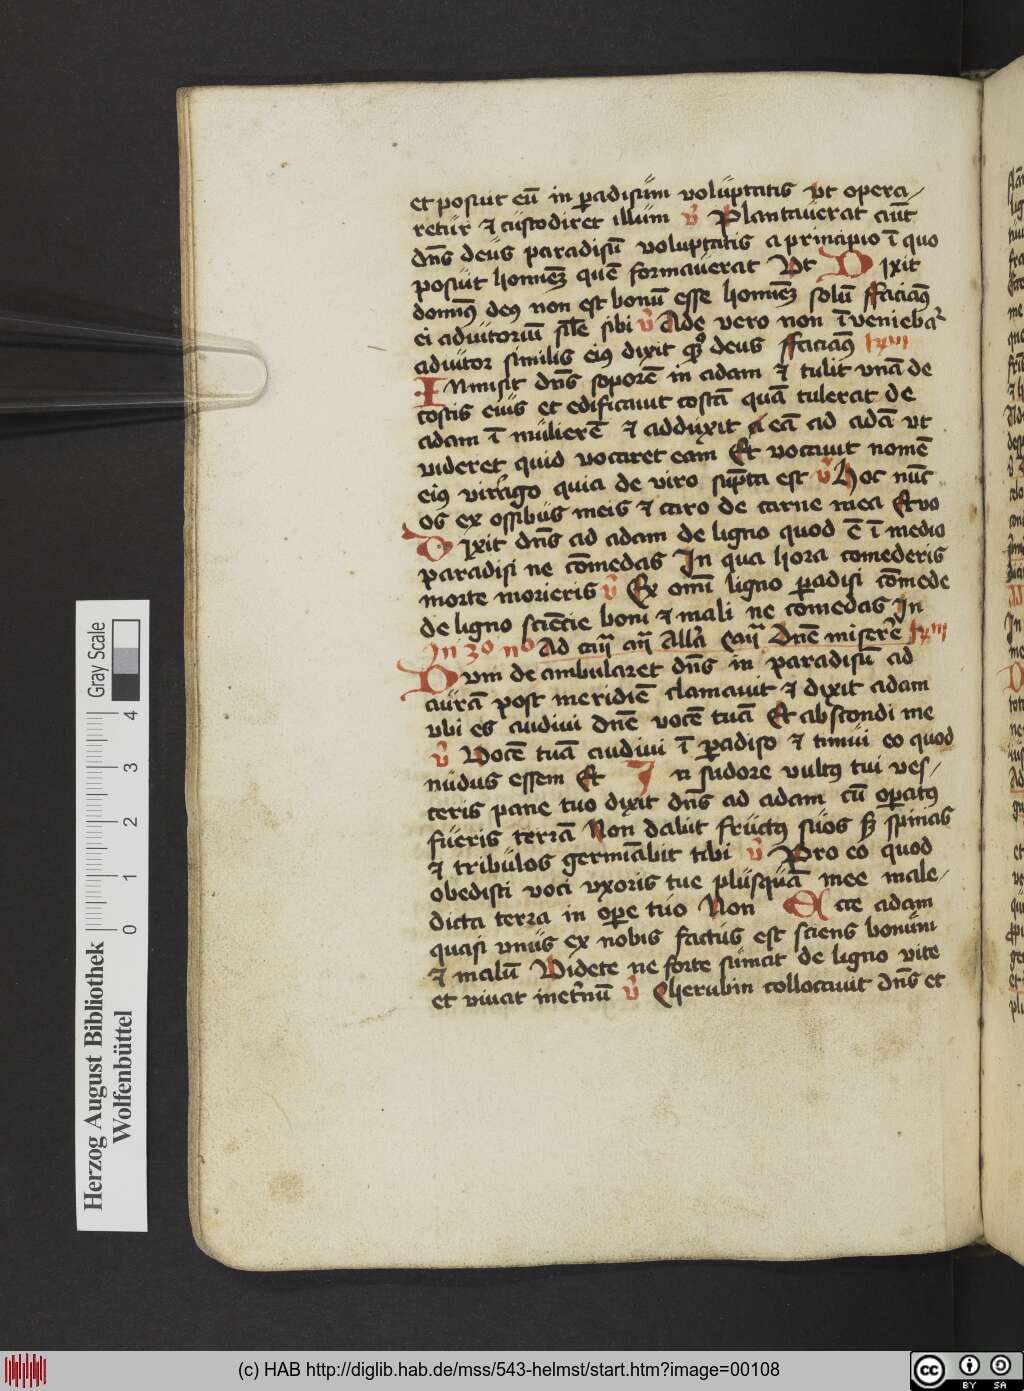 et posuit eū in ꝑadisum voluptatis vt opera/
retur ⁊ custodiret illum v̄ Plantauerat aūt
dn̄s deus paradisū voluptatis a principio ī quo
posuit hominē quē formauerat Vt Dixit
dominꝰ deꝰ non est bonū esse hominē solū ffaciaꝰ
ei adiutoriū sīle sibi v̄ Ade vero non īuenieba
adiutor similis eiꝰ dixit deus ffaciaꝰ lxvi
Inmisit dn̄s soporē in adam ⁊ tulit vnā de
costis eius et edificauit costā quā tulerat de
adam ī mulierē ⁊ adduxit eā ad adā vt
videret quid vocaret eam Et vocauit nomē
eiꝰ virago quia de viro sūpta est v̄ Hoc nūc
os ex ossibus meis ⁊ caro de carne mea Et vo
Dixit dn̄s ad adam de ligno quod ē ī medio
paradisi ne cōmedas In qua hora comederis
morte morieris v̄ Ex omī ligno ꝑadisi cōmede
de ligno sciēcie boni ⁊ mali ne comedas In
In 3o no Ad Allā Dn̄e miserē
Dum de ambularet dn̄s in paradisū ad
aurā post meridiē clamauit ⁊ dixit adam
vbi es audiui dn̄e vocē tuā Et abscondi me
v̄ Vocē tuā audiui ī ꝑadiso ⁊ timui eo quod
nudus essem Et In sudore vultꝰ tui ves/
ceris pane tuo dixit dn̄s ad adam cū oꝑatꝰ
fueris terrā Non dabit fructꝰ suos spinas
⁊ tribulos germīabit tibi v̄ Pro eo quod
obedisti voci vxoris tue plusquā mee male/
dicta terra in oꝑe tuo Non Ecce adam
quasi vnus ex nobis factus est sciens bonum
⁊ malū Videte ne forte sumat de ligno vite
et viuat inet̄nū v̄ Cherubin collocauit dn̄s et
Herzog August Bibliothek
Wolfenbüttel
Gray Scale
0 1 2 3 4
(c) HAB http://diglib.hab.de/mss/543-helmst/start.htm?image=00108
cc BY SA